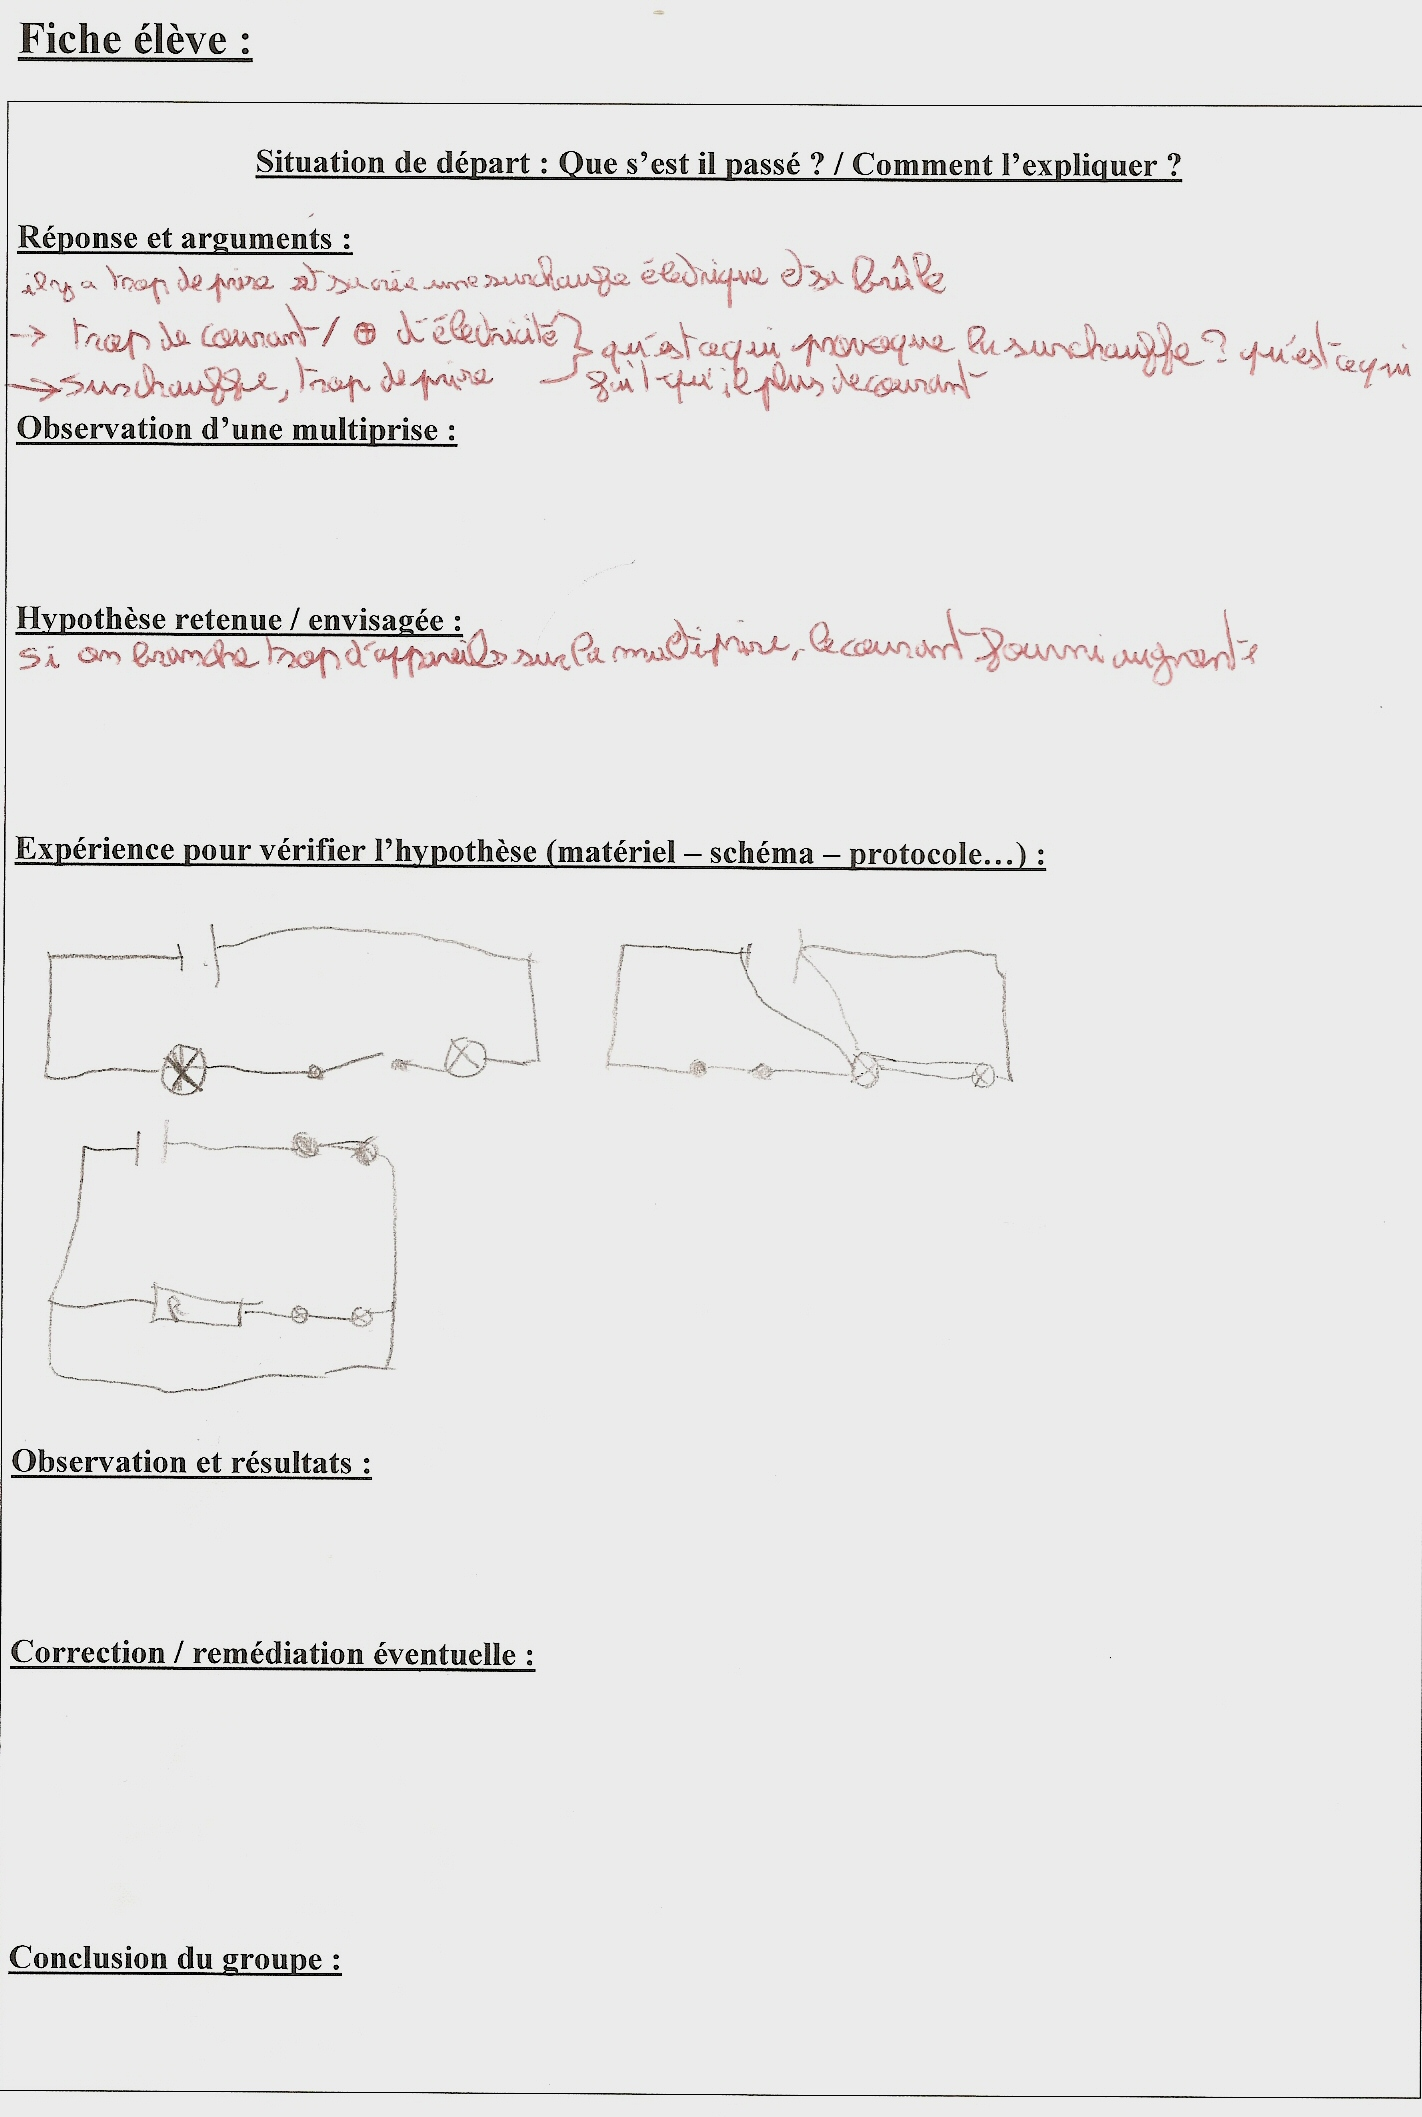 Fiche élève :
Situation de départ : Que s'est il passé ? / Comment l'expliquer ?
Réponse et arguments :
il y a trop de prise et sa crée une surchauffe électrique et sa brûle
→ trop de courant / ⊕ d'électricité } qu'est ce qui provoque la surchauffe ? qu'est ce qui
→ surchauffe, trop de prise — fait qu'il plus de courant
Observation d'une multiprise :
Hypothèse retenue / envisagée :
si on branche trop d'appareils sur la multiprise, le courant fourni augmente
Expérience pour vérifier l'hypothèse (matériel – schéma – protocole…) :
R
Observation et résultats :
Correction / remédiation éventuelle :
Conclusion du groupe :